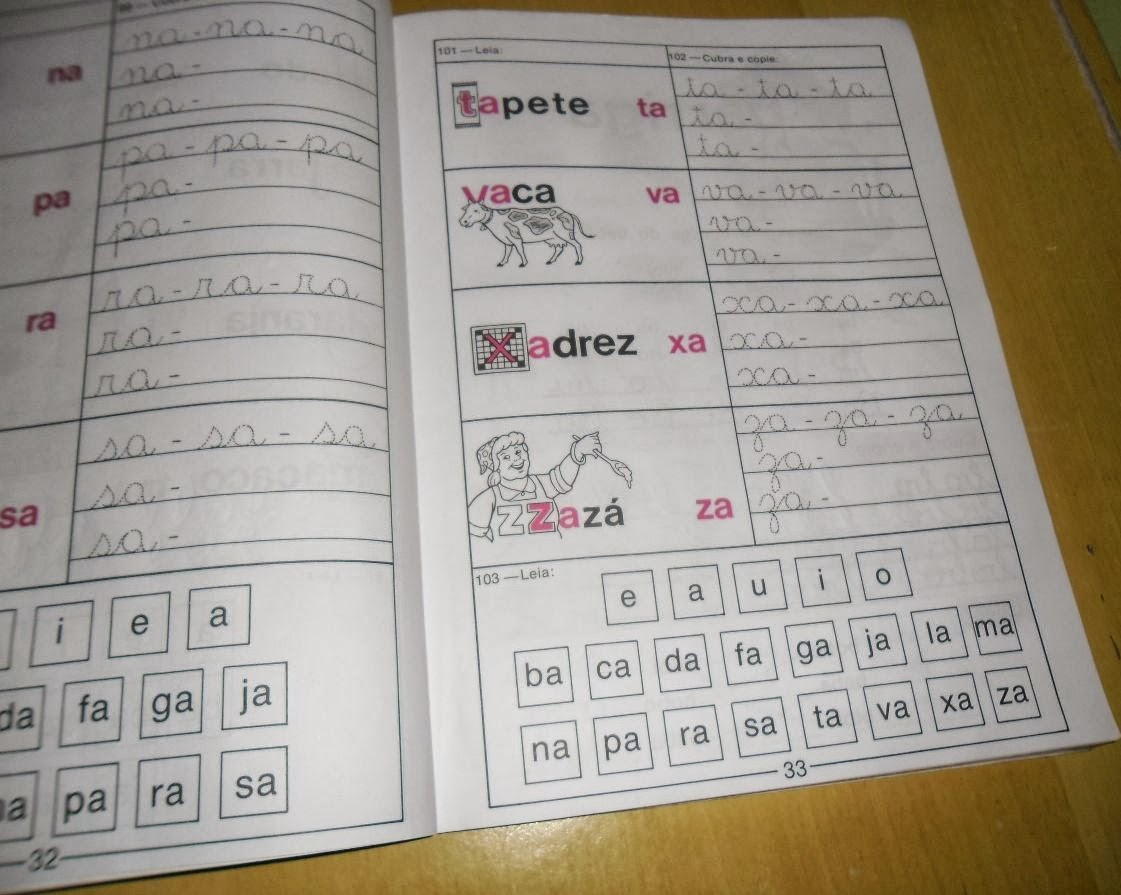 na - na - na
na
na -
na -
pa - pa - pa
pa
pa -
pa -
ra - ra - ra
ra
ra -
ra -
sa - sa - sa
sa
sa -
sa -
i e a
da fa ga ja
pa ra sa
32
101 — Leia:
102 — Cubra e copie:
tapete ta
ta - ta - ta
ta -
ta -
vaca va
va - va - va
va -
va -
xadrez xa
xa - xa - xa
xa -
xa -
Z zazá za
za - za - za
za -
za -
103 — Leia:
e a u i o
ba ca da fa ga ja la ma
na pa ra sa ta va xa za
33